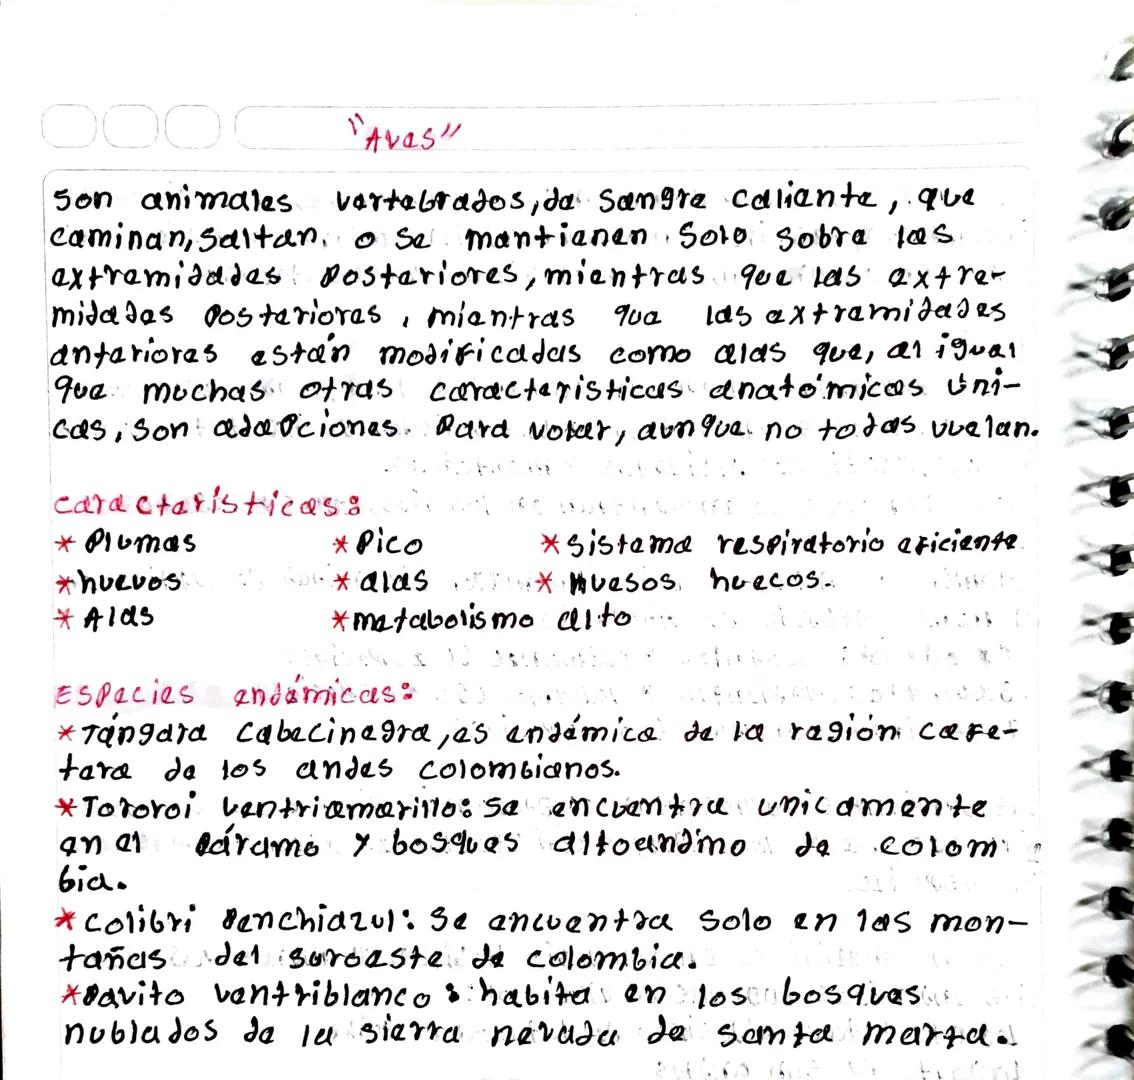 "Aves"
son animales vertebrados, de sangre caliente, que
caminan, saltan, o se mantienen solo sobre las
extremidades posteriores, mientras que las extre-
midades posteriores, mientras que las extremidades
anteriores están modificadas como alas que, al igual
que muchas otras caracteristicas anatómicas úni-
cas, son adapciones para volar, aunque no todas vuelan.
Características:
* Plumas * Pico * sistema respiratorio eficiente
* huevos * alas * Huesos huecos.
* Alas * metabolismo alto
Especies endémicas:
* Tángara cabecinegra, es endémica de la región cafe-
tera de los andes colombianos.
* Tororoi ventriamarillo: se encuentra unicamente
en el páramo y bosques altoandino de colom
bia.
* colibri penchiazul: se encuentra solo en las mon-
tañas del suroeste de colombia.
* pavito ventriblanco: habita en los bosques
nublados de la sierra nevada de santa marta.